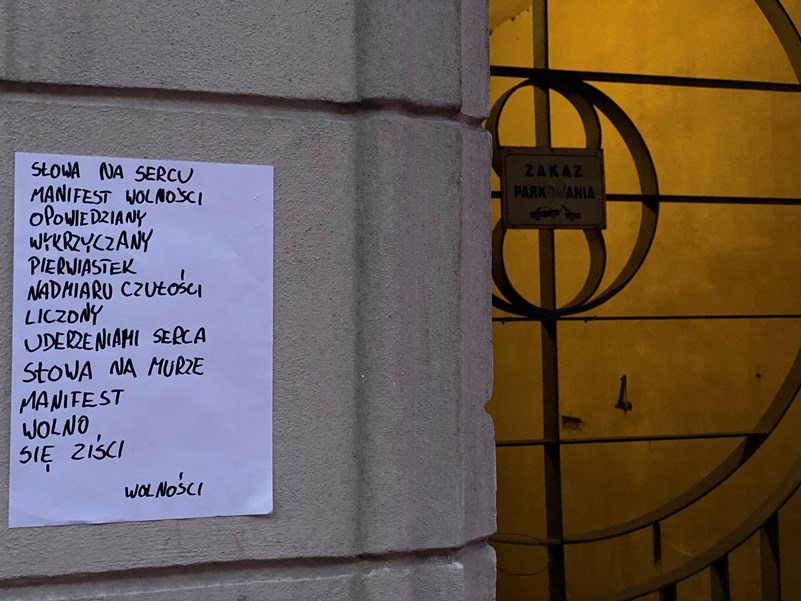 SŁOWA NA SERCU
MANIFEST WOLNOŚCI
OPOWIEDZIANY
WYKRZYCZANY
PIERWIASTEK
NADMIARU CZUŁOŚCI
LICZONY
UDERZENIAMI SERCA
SŁOWA NA MURZE
MANIFEST
WOLNO
SIĘ ZIŚCI
WOLNOŚCI
ZAKAZ
PARKOWANIA